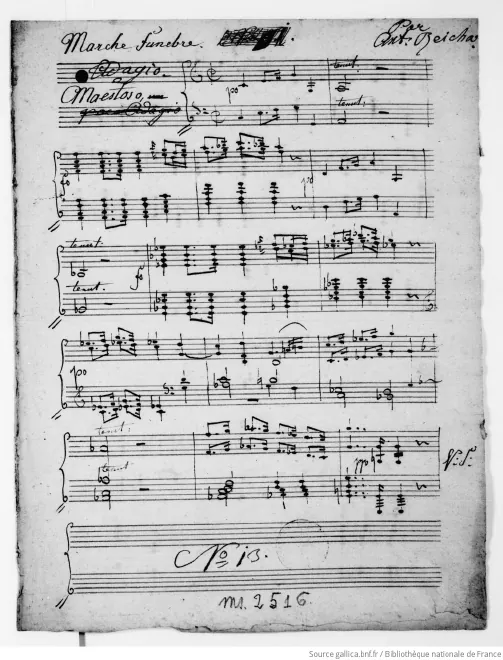 Marche funebre. par
Ant: Reicha.
Adagio.
Maestoso,
tenut:
po
tenut:
fo
po
tenut.
tenut.
fo
po
tenut:
tenut
pp
V: S:
No 13.
ms. 2516.
Source gallica.bnf.fr / Bibliothèque nationale de France